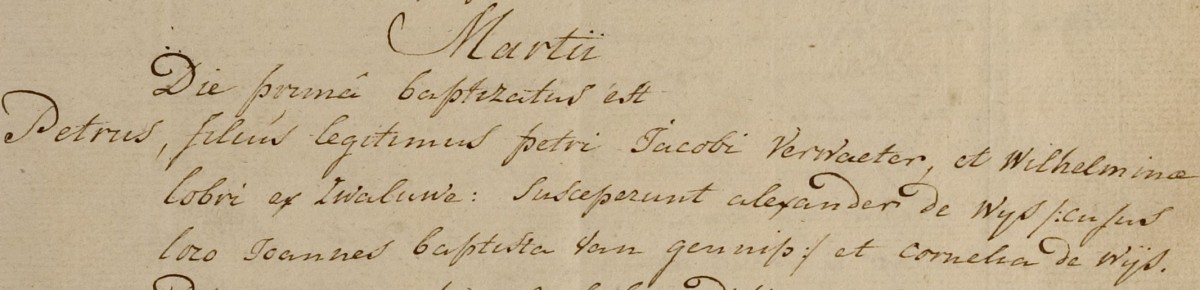 Martii
Die primâ baptizatus est
Petrus, filius legitimus petri Jacobi Verwaeter, et Wilhelminæ
lobri ex Zwaluwe: Susceperunt alexander de Wijs /:cujus
loco Joannes baptista Van gennip:/ et cornelia de Wijs.